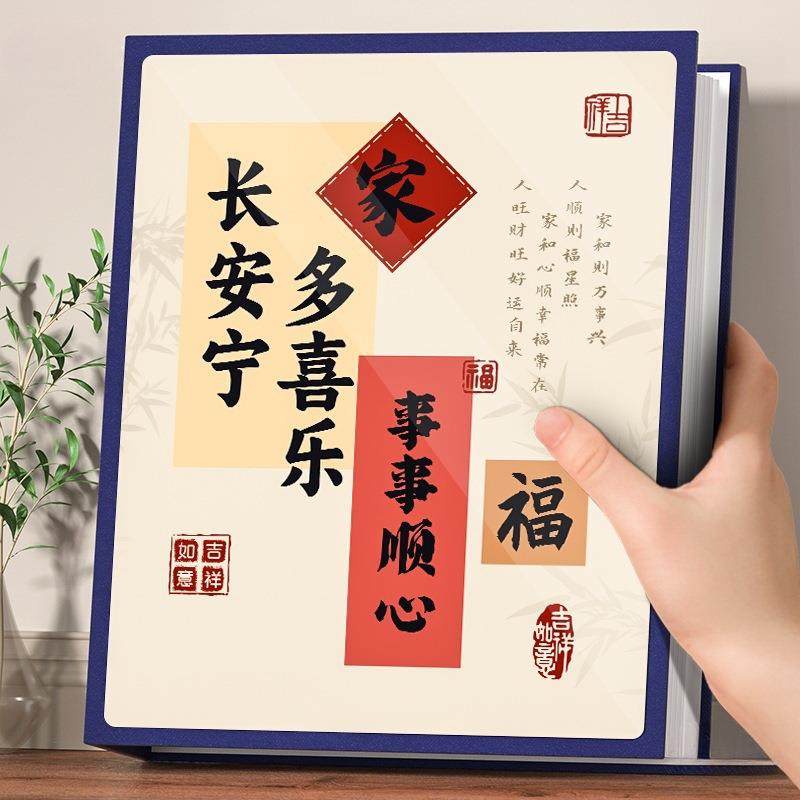 吉祥
家
家和则万事兴
人顺则福星照
家和心顺幸福常在
人旺财旺好运自来
长安宁
多喜乐
福
事事顺心
福
吉祥
如意
吉祥
如意